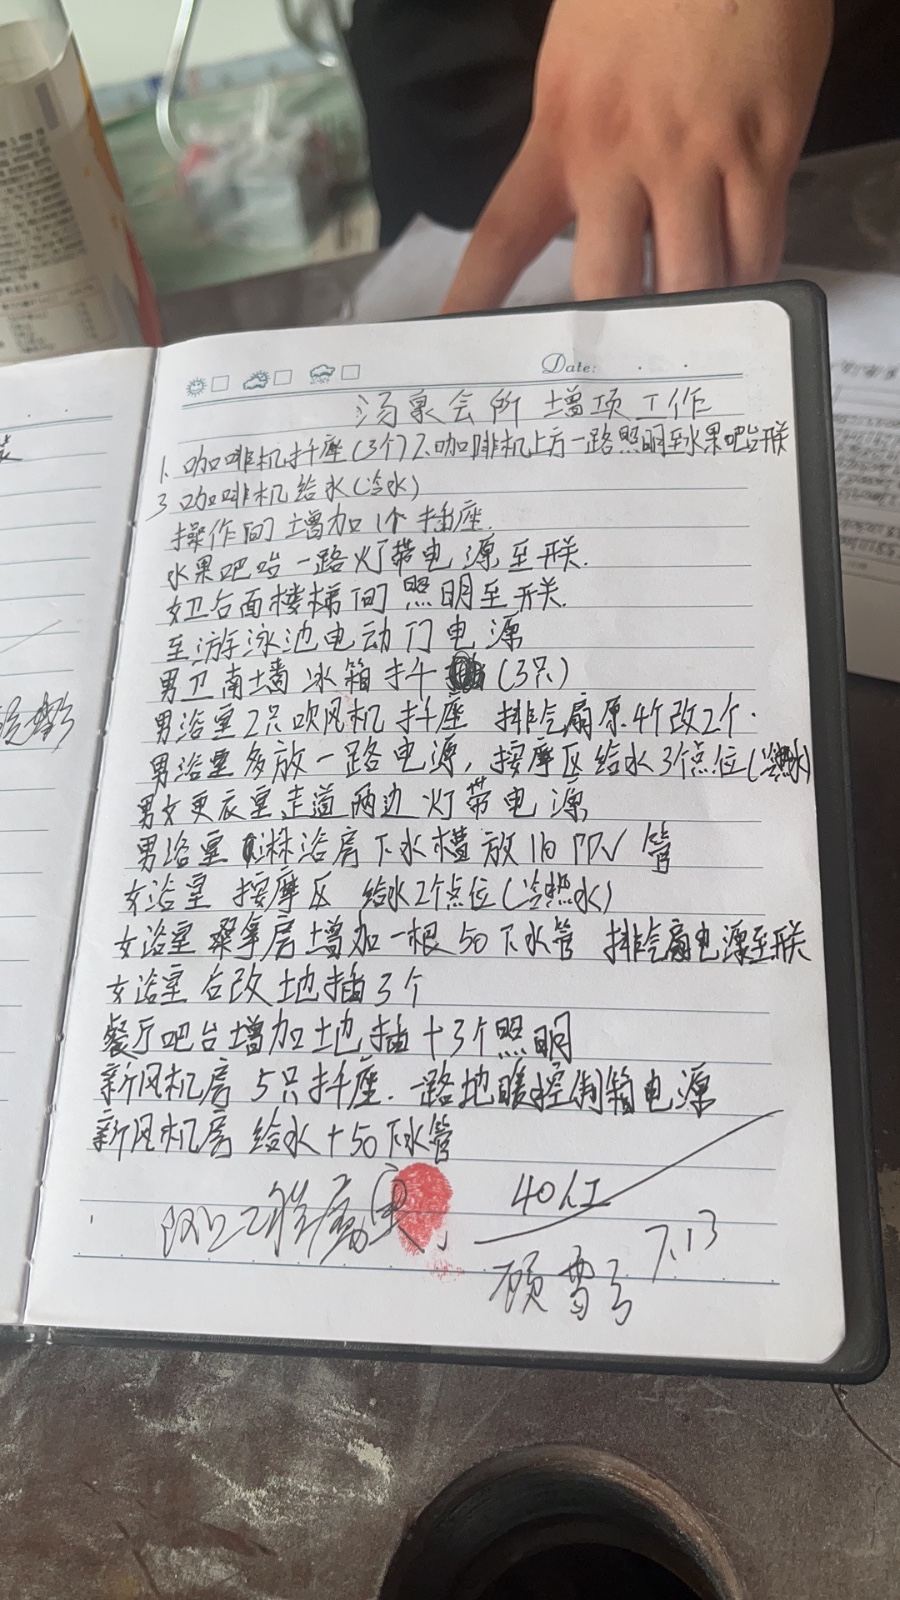 Date:
汤泉会所 增项工作
1、咖啡机扦座(3个)2、咖啡机上方一路照明至水果吧台开关
3 咖啡机给水(冷水)
操作间增加1个插座.
水果吧台一路灯带电源至开关.
女卫后面楼梯间照明至开关.
至游泳池电动门电源
男卫南墙冰箱扦(3只)
男浴室2只吹风机扦座 排气扇原4个改2个.
男浴室多放一路电源,按摩区给水3个点位(冷热水)
男女更衣室走道两边灯带电源
男浴室淋浴房下水槽放110 PPV管
女浴室 按摩区 给水2个点位(冷热水)
女浴室桑拿房增加一根50下水管 排气扇电源至开关
女浴室后改地插3个
餐厅吧台增加地插+3个照明
新风机房5只扦座.一路地暖控制箱电源
新风机房 给水+50下水管
40人工
7.13